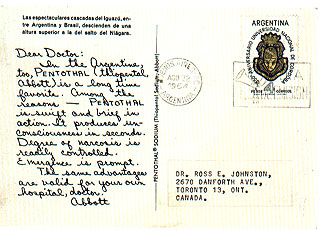 Las espectaculares cascadas del Iguazú, en-
tre Argentina y Brasil, descienden de una
altura superior a la del salto del Niágara.
Dear Doctor:
In the Argentine,
too, PENTOTHAL (Thiopental,
Abbott) is a long time
favorite. Among the
reasons — PENTOTHAL
is swift and brief in
action. It produces un-
consciousness in seconds.
Degree of narcosis is
readily controlled.
Emergence is prompt.
The same advantages
are valid for your own
hospital, doctor.
Abbott
PENTOTHAL SODIUM (Thiopental Sodium, Abbott)
ARGENTINA
UNIVERSIDAD NACIONAL DE CORDOBA
PESOS
1964
DR. ROSS E. JOHNSTON,
2670 DANFORTH AVE.,
TORONTO 13, ONT.
CANADA.